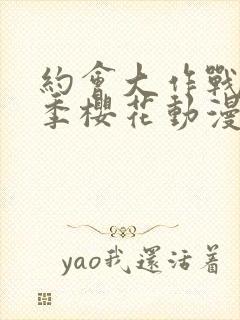 約會大作戰
季櫻花動漫
yao我還活着